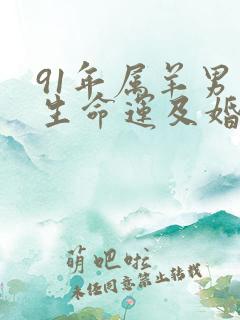 91年属羊男
生命运及婚
萌吧啦
未经同意禁止转载